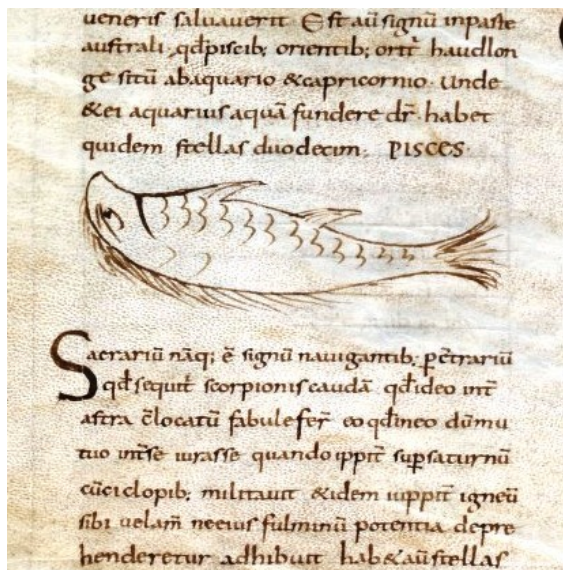 ueneris saluauerit Est aū signū inparte
australi, qđ piscib; orientib; ortr̄ haud lon
ge sitū abaquario & capricornio. Unde
& ei aquarius aquā fundere dr̄. habet
quidem stellas duodecim; PISCES.
Sacrariū nāq; ē signū nauigantib; ꝑ c̄trariū
qđ sequit̄ scorpionis caudā qđ ideo int̄
astra c̄locatū fabule fer̄ eo qđ in eo dūmu
tuo int̄ se iurasse quando ippit̄ suꝑ saturnū
cū ciclopib; militauit & idem iuppit̄ igneū
sibi uelam̄ ne eius fulminū potentia depre
henderetur adhibuit hab& aū stellas